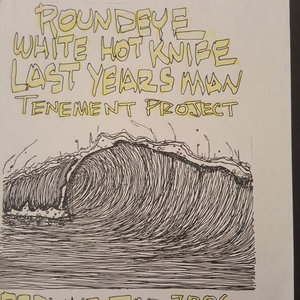 ROUNDEYE
WHITE HOT KNIFE
LAST YEARS MAN
TENEMENT PROJECT